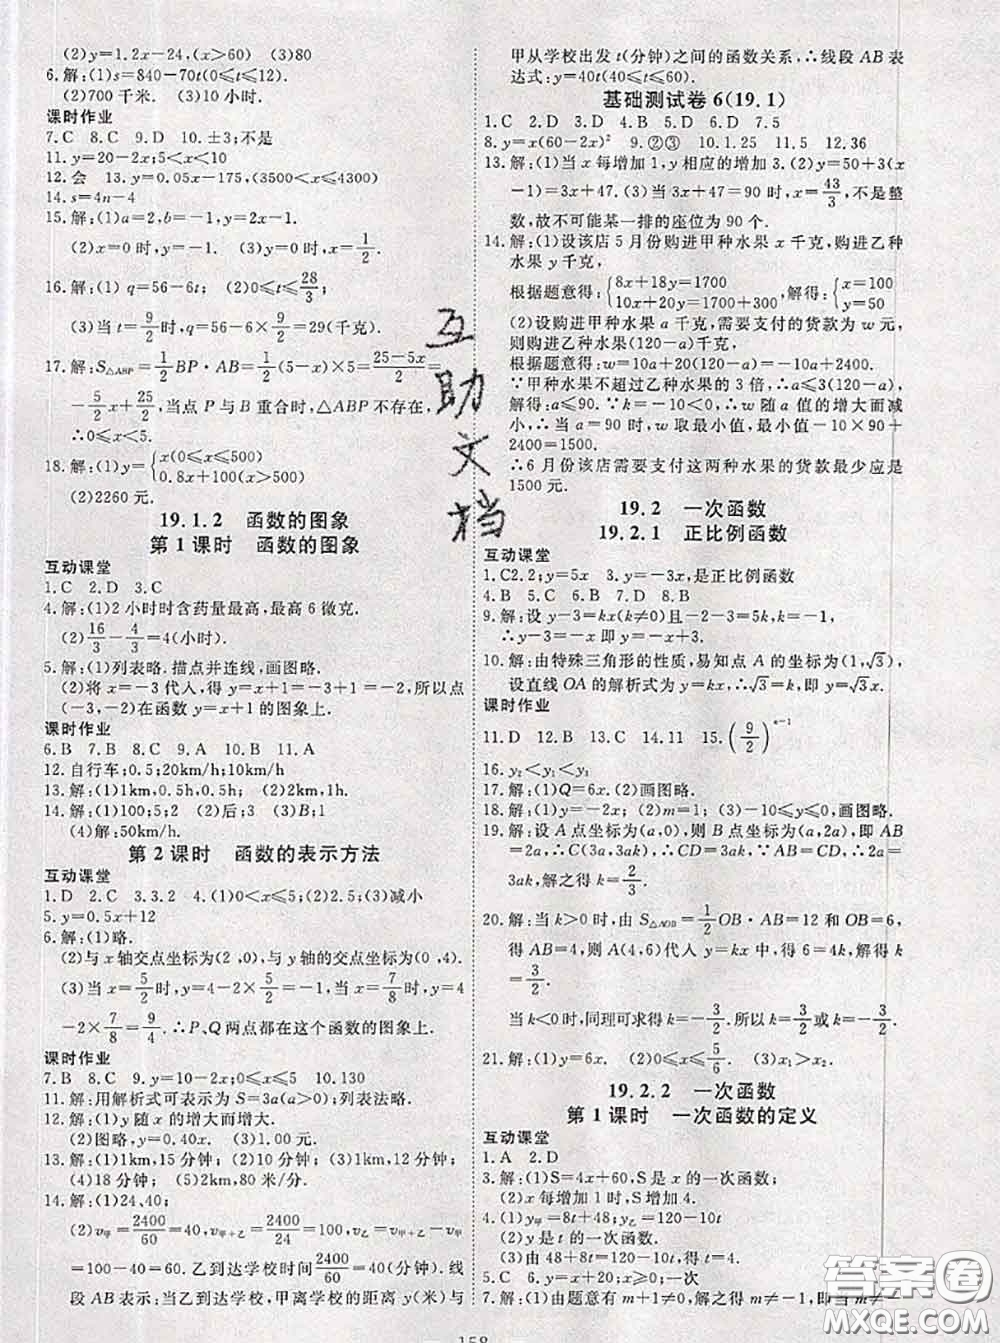 (2)y=1.2x-24,(x>60)  (3)80
6.解:(1)s=840-70t(0≤t≤12).
(2)700千米.  (3)10小时.
课时作业
7.C  8.C  9.D  10.±3;不是
11.y=20-2x;5<x<10
12.会  13.y=0.05x-175,(3500<x≤4300)
14.s=4n-4
15.解:(1)a=2,b=-1,y=2x-1.
(2)x=0时,y=-1.  (3)y=0时,x=1/2.
16.解:(1) q=56-6t;  (2)0≤t≤28/3;
(3)当t=9/2时,q=56-6×9/2=29(千克)
17.解:S△ABP=1/2BP·AB=1/2(5-x)×5=(25-5x)/2=
-5/2x+25/2,当点P与B重合时,△ABP不存在,
∴0≤x<5.
18.解:(1)y={x(0≤x≤500) 0.8x+100(x>500)
(2)2260元.
19.1.2  函数的图象
第1课时  函数的图象
互动课堂
1.C  2.D  3.C
4.解:(1)2小时时含药量最高,最高6微克.
(2)16/3-4/3=4(小时).
5.解:(1)列表略.描点并连线,画图略.
(2)将x=-3代人,得y=-3+1=-2,所以点
(-3,-2)在函数y=x+1的图象上.
课时作业
6.B  7.B  8.C  9.A  10.B  11.A
12.自行车;0.5;20km/h;40km/h.
13.解:(1)1km,0.5h,0.5h;  (2)2km/h.
14.解:(1)100;5;2  (2)后;2  (3)B;1
(4)解:50km/h.
第2课时  函数的表示方法
互动课堂
1.D  2.C  3.3.2  4.(1)0<x≤5;(2)2.5;(3)减小
5.y=0.5x+12
6.解:(1)略.
(2)与x轴交点坐标为(2,0),与y轴的交点坐标为(0,4).
(3)当x=5/2时,y=4-2×5/2=-1.当x=7/8时,y=4
-2×7/8=9/4.∴P、Q两点都在这个函数的图象上.
课时作业
7.B  8.C  9.y=10-2x;0<x≤5  10.130
11.解:用解析式可表示为S=3a(a>0)图象略.
12.解:(1)y随x的增大而增大.
(2)图略,y=0.40x.  (3)2.00
13.解:(1)1km,15分钟;(2)10分钟;(3)1km;
(4)18分钟;(5)2km,80米/分.
14.解:(1)24,40;
(2)v甲=2400/60=40,v甲+乙=2400/24=100,v乙=v甲+乙-v甲
=100-40=60.乙到达学校时间2400/60=40(分钟).线
段AB表示;当乙到达学校,甲离学校的距离y(米)与
甲从学校出发t(分钟)之间的函数关系,∴线段AB表
达式:y=40t(40≤t≤60).
基础测试卷6(19.1)
1.C  2.D  3.D  4.C  5.D  6.D  7.5
8.y=x(60-2x)²  9.②③  10.1.25  11.5  12.36
13.解:(1)当x每增加1,y相应的增加3.(2)y=50+3(x
-1)=3x+47.(3)当3x+47=90时,x=43/3,不是整
数,故不可能某一排的座位为90个.
14.解:(1)设该店5月份购进甲种水果x千克,购进乙种
水果y千克,
根据题意得:{8x+18y=1700 10x+20y=1700+300,解得:{x=100 y=50
(2)设购进甲种水果a千克,需要支付的货款为w元,
则购进乙种水果(120-a)千克,
根据题意得:w=10a+20(120-a)=-10a+2400.
∵甲种水果不超过乙种水果的3倍,∴a≤3(120-a),
解得:a≤90.∵k=-10<0,∴w随a值的增大而减
小,∴当a=90时,w取最小值,最小值-10×90+
2400=1500.
∴6月份该店需要支付这两种水果的货款最少应是
1500元.
19.2  一次函数
19.2.1  正比例函数
互动课堂
1.C2.2;y=5x  3.y=-3x,是正比例函数
4.B  5.C  6.B  7.D  8.B
9.解:设y-3=kx(k≠0)且-2-3=5k,∴k=-1,
∴y-3=-x即y=-x+3;
10.解:由特殊三角形的性质,易知点A的坐标为(1,√3),
设直线OA的解析式为y=kx,∴√3=k,即y=√3x.
课时作业
11.D  12.B  13.B  14.11  15.(9/2)ⁿ⁻¹
16.y₂<y₁<y₃
17.解:(1)Q=6x.  (2)画图略.
18.解:(1)y=-2x;(2)m=1;(3)-10≤y≤0,画图略.
19.解:设A点坐标为(a,0),则B点坐标为(a,2a),即AB
=2a,∵AB=CD,∴CD=2a,∵CD=3ak,∴2a=
3ak,解之得k=2/3.
20.解:当k>0时,由S△AOB=1/2OB·AB=12和OB=6,
得AB=4,则A(4,6)代人y=kx中,得6=4k,解得k
=3/2.
当k<0时,同理可求得k=-3/2.所以k=3/2或k=-3/2.
21.解:(1)y=6x.  (2)0≤x≤5/6(3)x₁>x₂.
19.2.2  一次函数
第1课时  一次函数的定义
互动课堂
1.A  2.D
3.解:(1)S=4x+60,S是一次函数;
(2)x每增加1时,S增加4.
4.(1)y甲=8t+48;y乙=120-10t
(2)y是t的一次函数.
(3)由48+8t=120-10t得t=4.
5.C  6.y=180-2x;一次
7.解:(1)由题意有m+1≠0,解得m≠-1,当m≠-
158
互助文档
答案圈
MXQE.COM